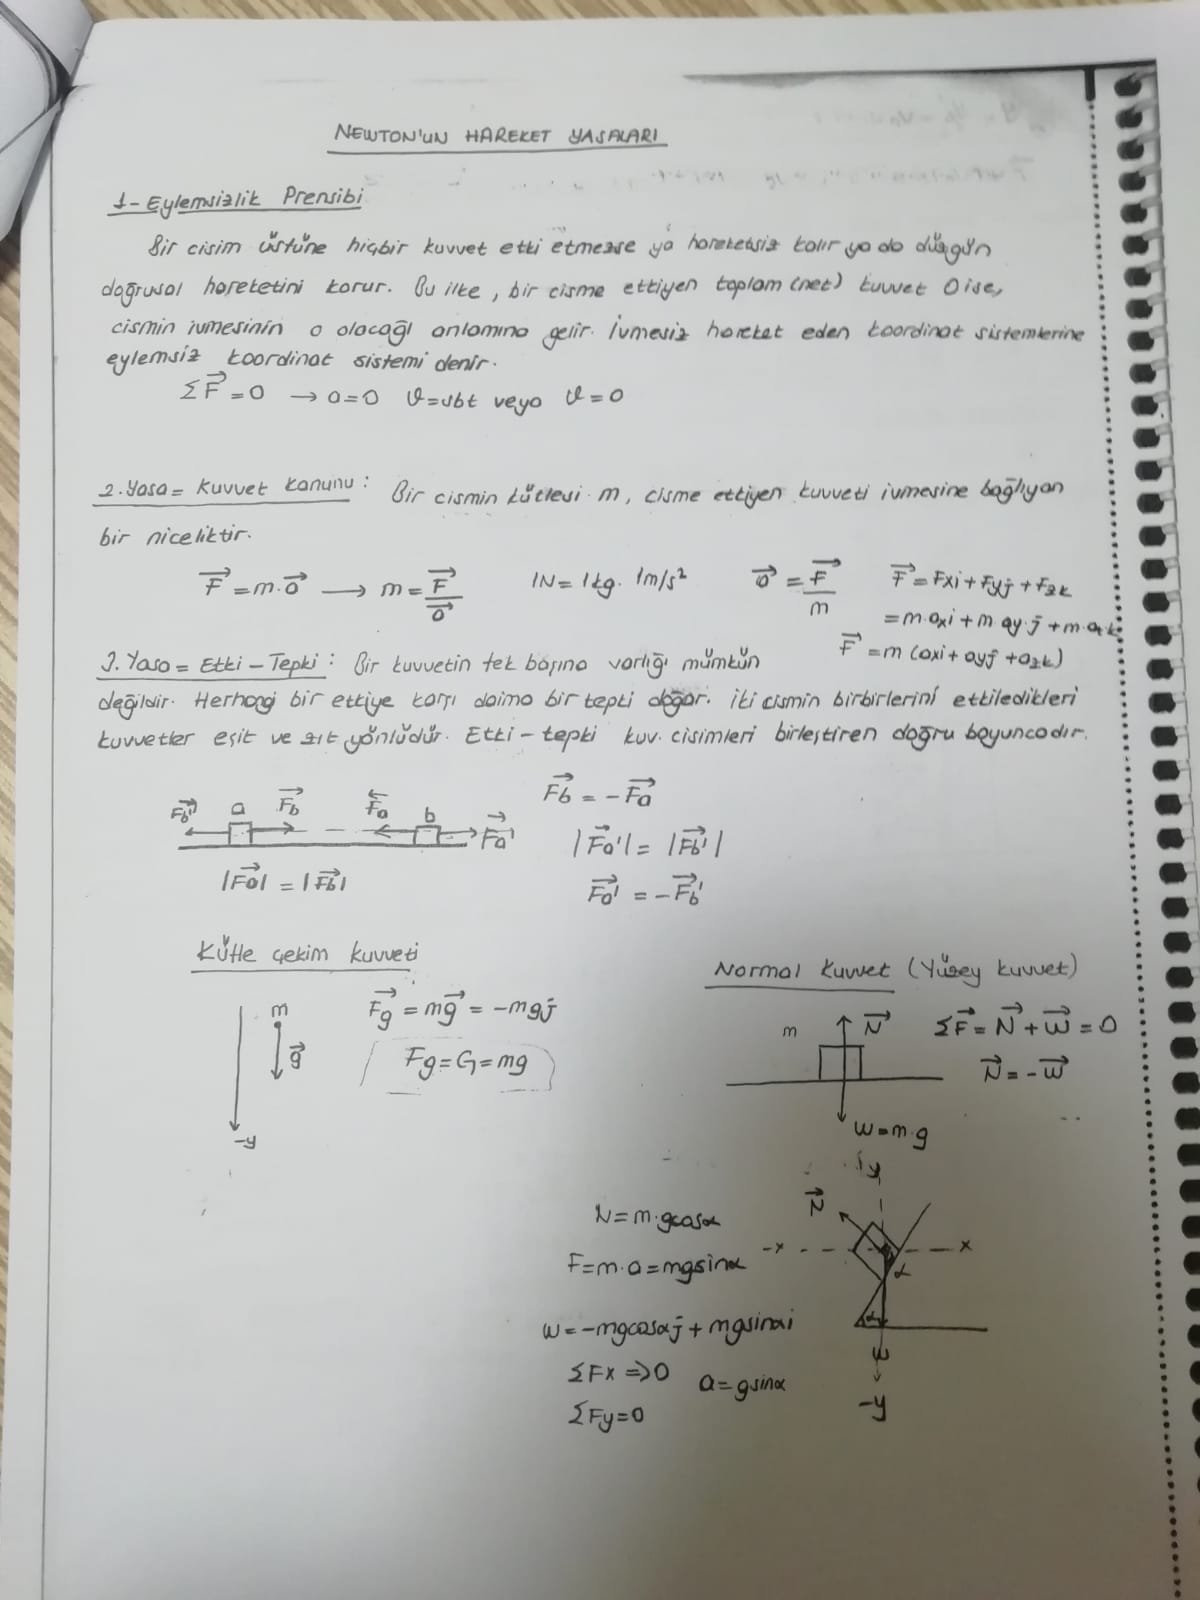 NEWTON'UN HAREKET YASALARI
1- Eylemsizlik Prensibi
Bir cisim üstüne hiçbir kuvvet etki etmezse ya hareketsiz kalır ya da düzgün
doğrusal hareketini korur. Bu ilke, bir cisme etkiyen toplam (net) kuvvet 0 ise,
cismin ivmesinin 0 olacağı anlamına gelir. İvmesiz hareket eden koordinat sistemlerine
eylemsiz koordinat sistemi denir.
ΣF⃗ = 0 → a=0 ϑ=sbt veya ϑ=0
2. Yasa = Kuvvet kanunu : Bir cismin kütlesi m, cisme etkiyen kuvveti ivmesine bağlıyan
bir niceliktir.
F⃗ = m.a⃗ → m = F⃗/a⃗ 1N = 1kg. 1m/s² a⃗ = F⃗/m F⃗ = Fxi + Fyj + Fzk
= m.axi + m.ay.j + m.azk
F⃗ = m (axi + ayj + azk)
3. Yasa = Etki - Tepki : Bir kuvvetin tek başına varlığı mümkün
değildir. Herhangi bir etkiye karşı daima bir tepki doğar. İki cismin birbirlerini etkiledikleri
kuvvetler eşit ve zıt yönlüdür. Etki - tepki kuv. cisimleri birleştiren doğru boyuncadır.
F⃗b' a F⃗b F⃗a b F⃗a'
F⃗b = -F⃗a
|F⃗a'| = |F⃗b'|
|F⃗a| = |F⃗b|
F⃗a' = -F⃗b'
Kütle çekim kuvveti
m
g⃗
-y
F⃗g = mg⃗ = -mgj
Fg = G = mg
Normal Kuvvet (Yüzey kuvvet)
m N⃗ ΣF⃗ = N⃗ + W⃗ = 0
N⃗ = -W⃗
W = m.g
y
N⃗
-x x
α
α
W
-y
N = m.gcosα
F = m.a = mgsinα
W = -mgcosαj + mgsinαi
ΣFx => 0 a = gsinα
ΣFy = 0